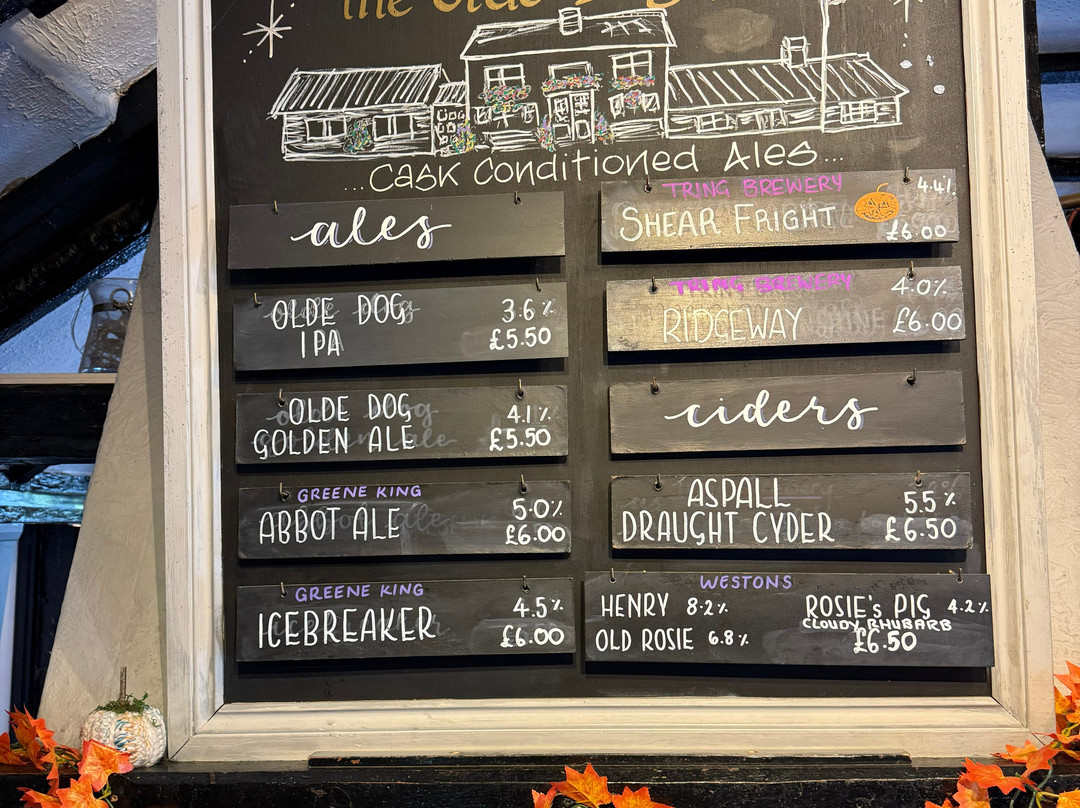 The Olde Dog
...Cask Conditioned Ales...
ales
OLDE DOG 3.6%
IPA £5.50
OLDE DOG 4.1%
GOLDEN ALE £5.50
GREENE KING
ABBOT ALE 5.0%
£6.00
GREENE KING
ICEBREAKER 4.5%
£6.00
TRING BREWERY 4.4%
SHEAR FRIGHT £6.00
TRING BREWERY 4.0%
RIDGEWAY £6.00
ciders
ASPALL 5.5%
DRAUGHT CYDER £6.50
WESTONS
HENRY 8.2% ROSIE'S PIG 4.2%
CLOUDY RHUBARB
OLD ROSIE 6.8% £6.50